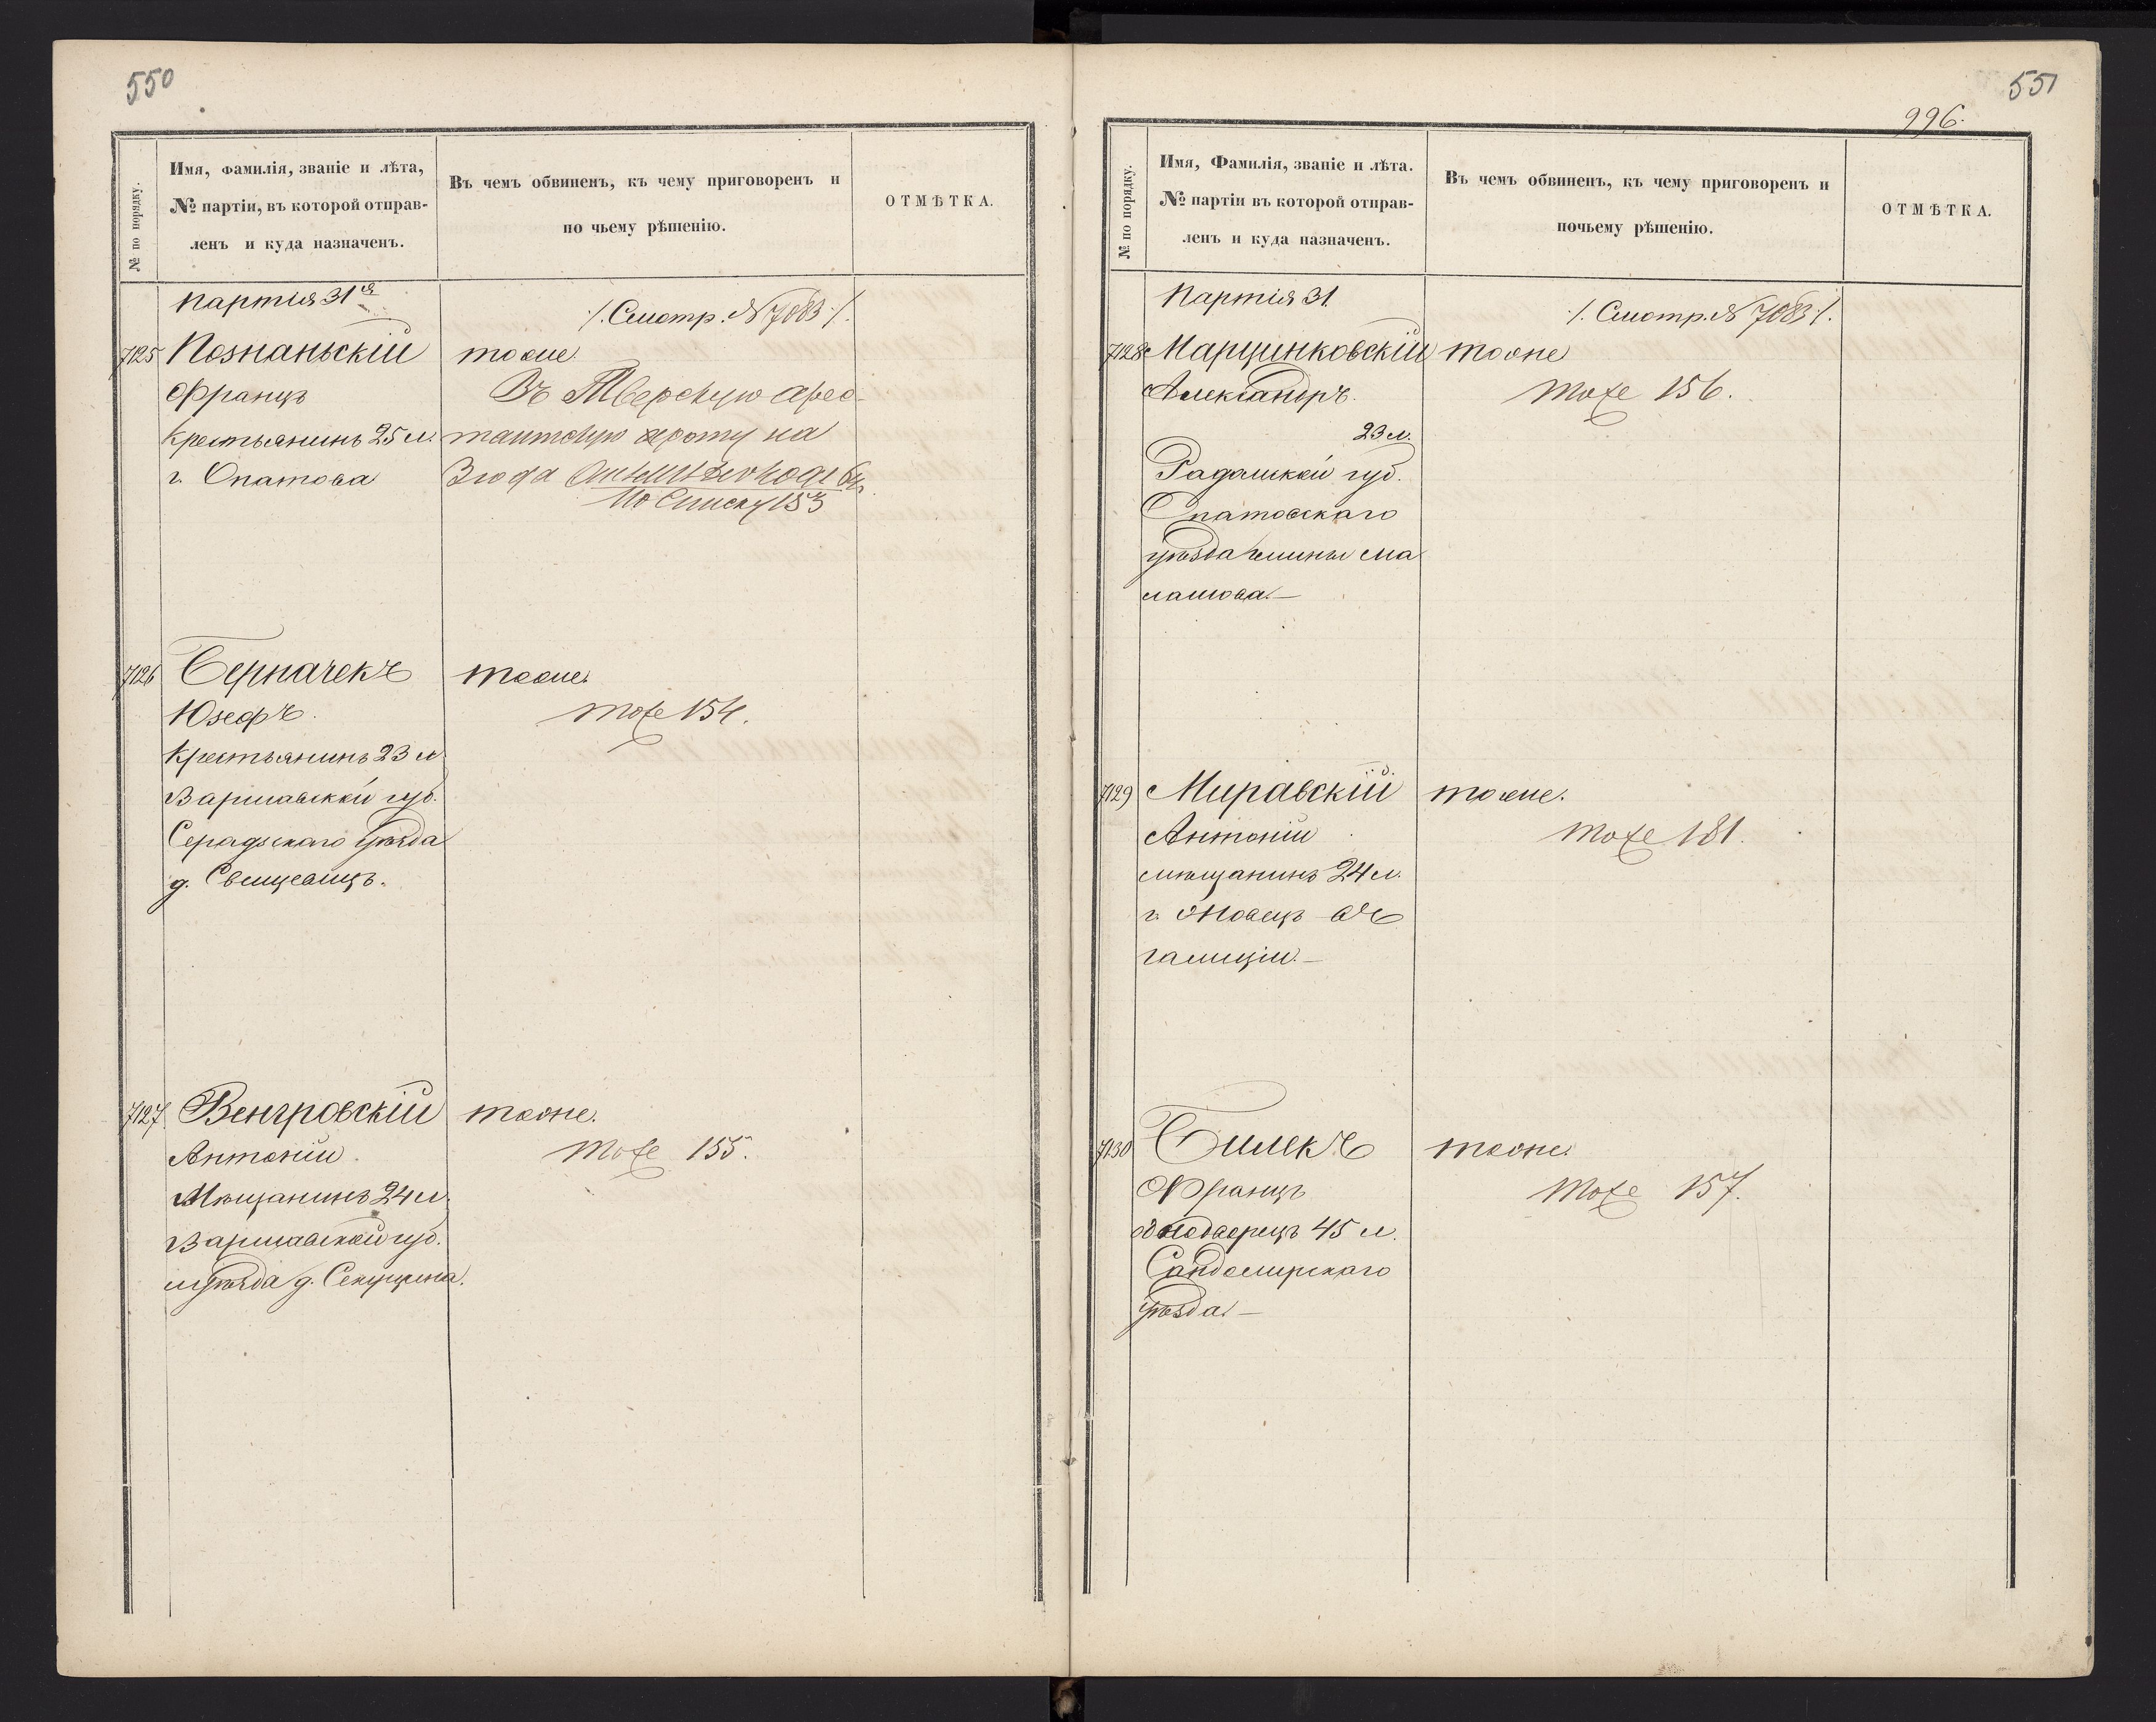 550
№ по порядку.
Имя, фамилія, званіе и лѣта,
№ партіи, въ которой отправ-
ленъ и куда назначенъ.
Въ чемъ обвиненъ, къ чему приговоренъ и
по чьему рѣшенію.
ОТМѢТКА.
Партія 31я
/. Смотр. № 7083 /.
7125 Познаньскій
тоже
Францъ
Въ Тверскую арес-
Крестьянинъ 25 л.
тантскую роту на
г. Опатова
3 года
По Списку 153
7126
тоже.
Юзефъ.
тоже 154.
Крестьянинъ 23 л.
Варшавской губ.
Серадзскаго Уѣзда
д.
7127 Венгровскій
тоже.
Антоній
тоже 155.
Мѣщанинъ 24 л.
Варшавской губ.
и уѣзда д.
551
996.
№ по порядку.
Имя, Фамилія, званіе и лѣта.
№ партіи въ которой отправ-
ленъ и куда назначенъ.
Въ чемъ обвиненъ, къ чему приговоренъ и
почьему рѣшенію.
ОТМѢТКА.
Партія 31.
/. Смотр. № 7083 /.
7128 Марцинковскій
тоже
Александръ.
тоже 156.
23 л.
Радомской губ.
Опатовскаго
уѣзда гмины
7129 Миравскій
тоже.
Антоній
тоже 181.
мѣщанинъ 24 л.
г. въ
Галиціи.—
7130 Билекъ
тоже.
Францъ
тоже 157.
однодворецъ 45 л.
Сандомирскаго
уѣзда.—